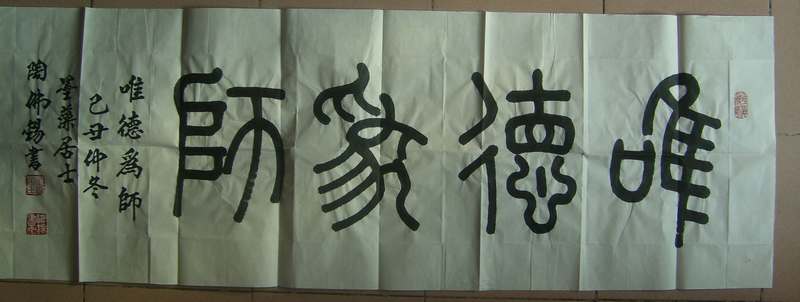 唯德為師
唯德為師
己丑仲冬
墨藥居士
陶佛錫書